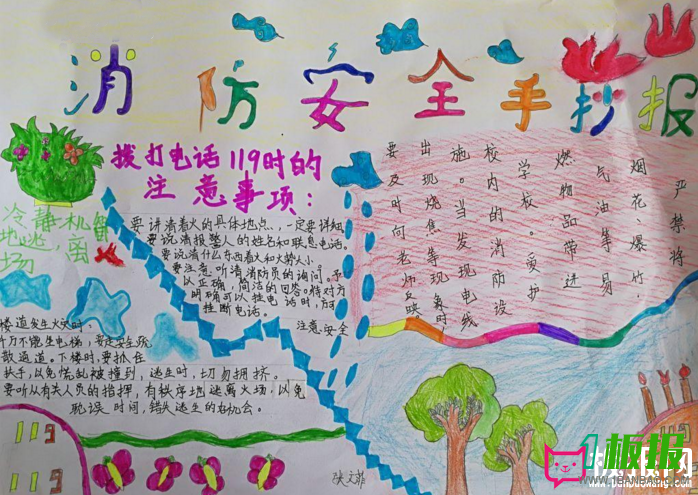 消防安全手抄报
拨打电话119时的
注意事项:
冷静机智
地逃离
场
要讲清着火的具体地点、一定要详细
要说清报警人的姓名和联息电话。
要说清什么东西着火和火势大小。
要注意听清消防员的询问，予
以正确，简洁的回答。待对方
明确可以挂电话时，方可
挂断电话。
注意安全
严禁将
烟花、爆竹、
汽油等易
燃物品带进
学校。爱护
校内的消防设
施。当发现电线
出现烧焦等现象时，
要及时向老师反映。
楼道发生火灾时:
千万不能坐电梯，
散通道。下楼时，要抓住
扶手，以免慌乱被撞到，逃生时，切勿拥挤。
要听从有关人员的指挥，有秩序地逃离火场，以免
耽误时间，错失逃生的好机会。
119
119
文菲
板报网
WWW.1BANBAO.COM